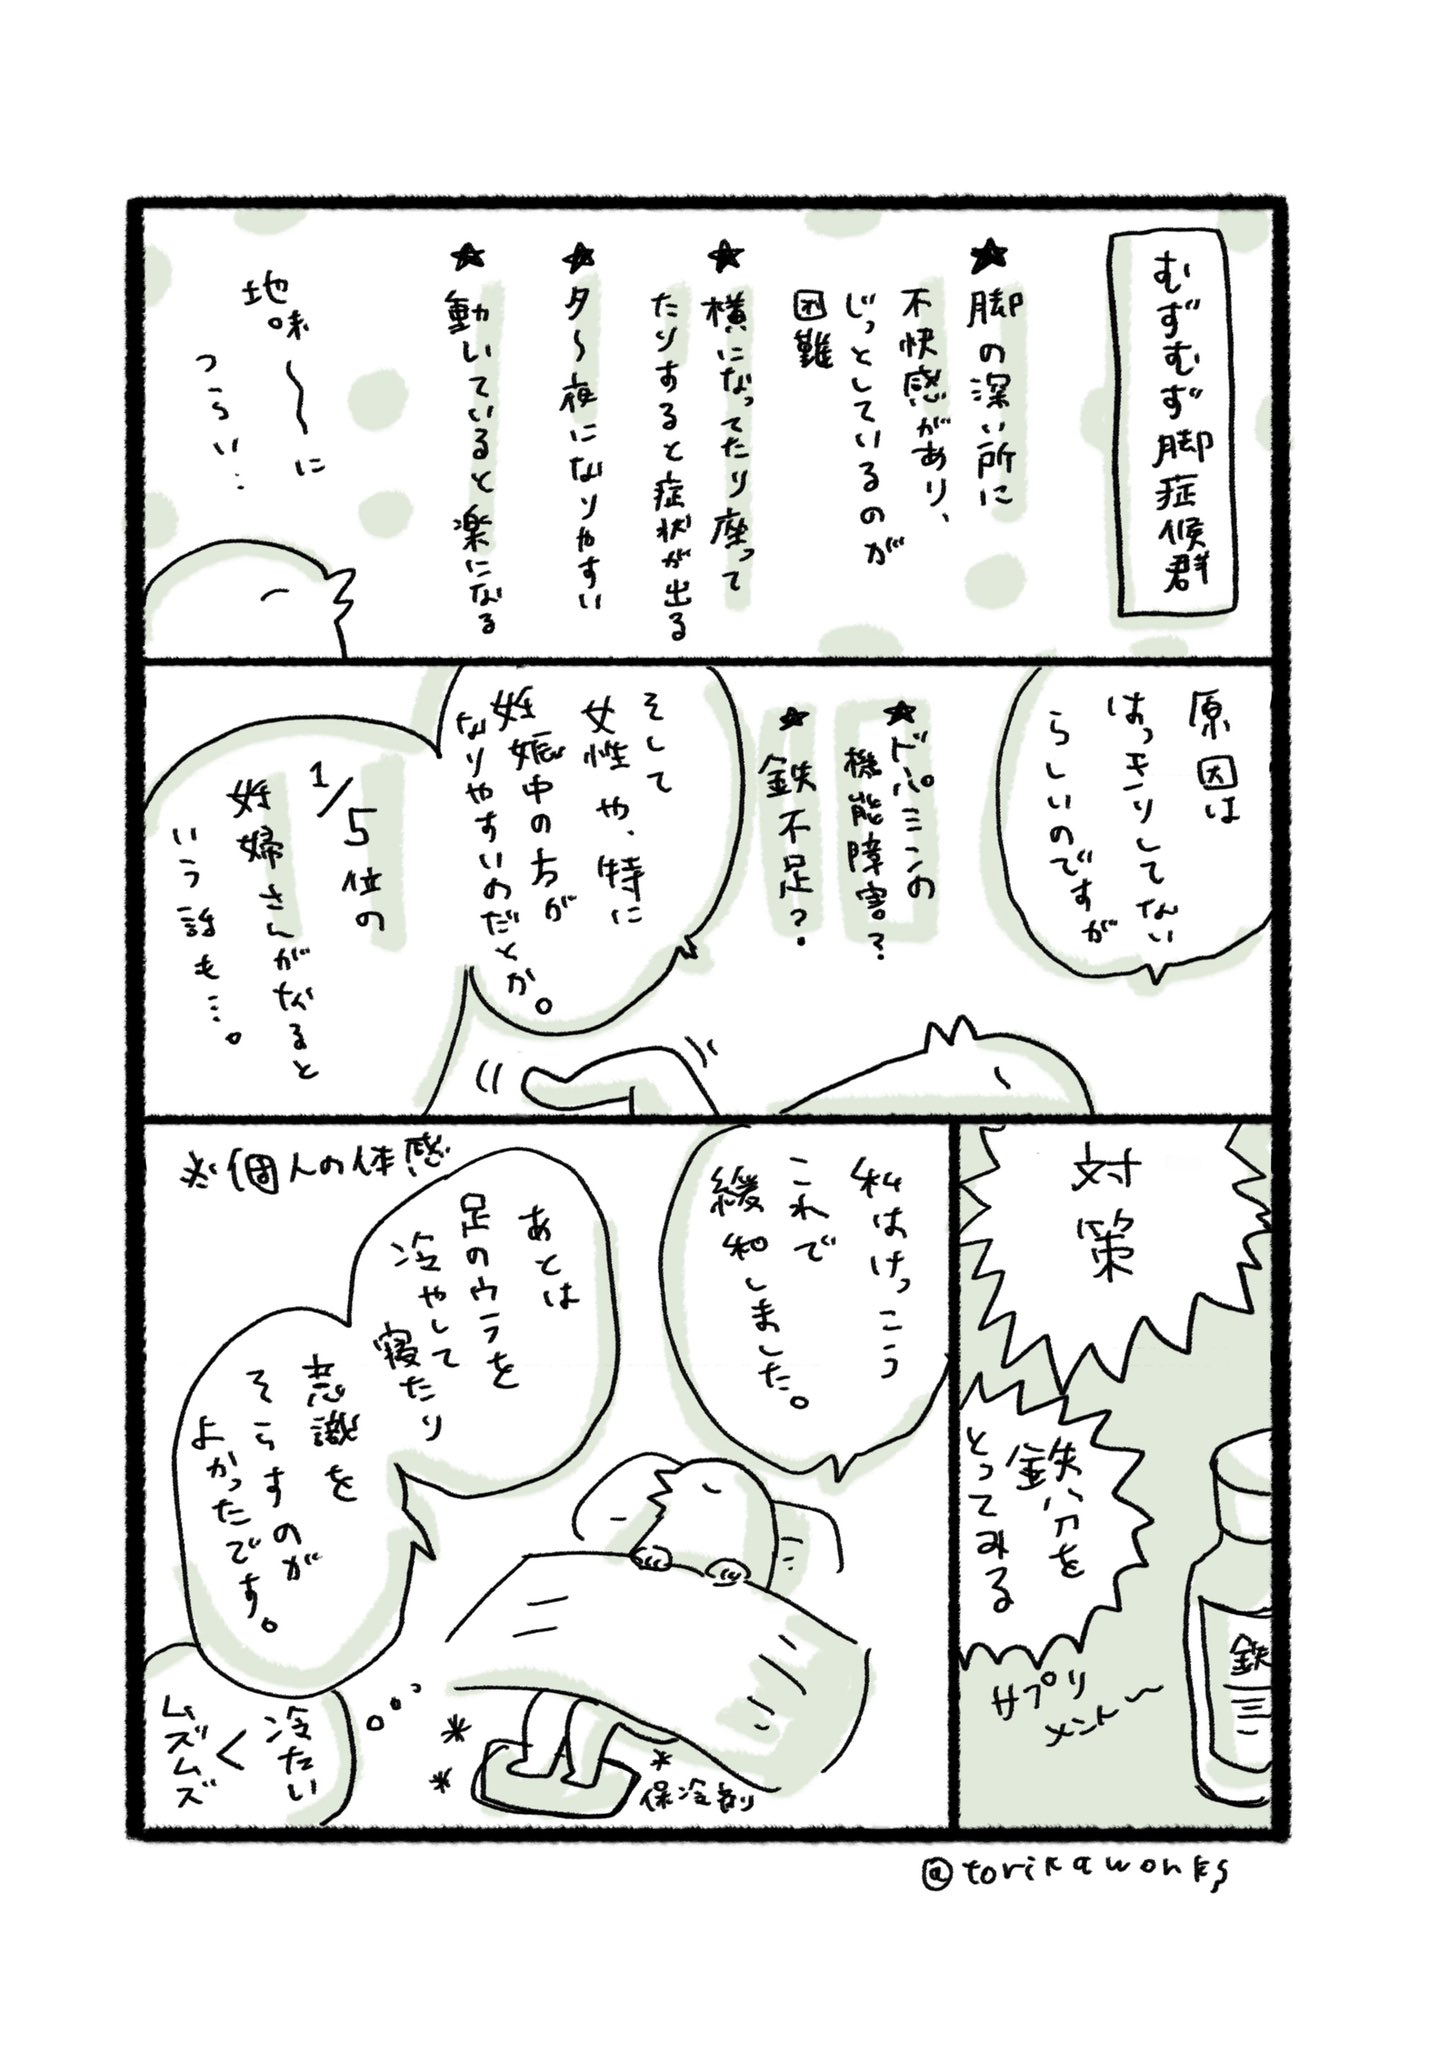 むずむず脚症候群
★脚の深い所に
不快感があり、
じっとしているのが
困難
★横になってたり座って
たりすると症状が出る
★夕〜夜になりやすい
★動いていると楽になる
地味〜に
つらい…
原因は
はっきりしてない
らしいのですが
★ドパミンの
機能障害?
★鉄不足?
そして
女性や、特に
妊娠中の方が
なりやすいのだとか。
1/5位の
妊婦さんがなると
いう話も…。
対策
鉄分を
とってみる
サプリ
メント〜
鉄
私はけっこう
これで
緩和しました。
※個人の体感
あとは
足のウラを
冷やして
寝たり
意識を
そらすのが
よかったです。
保冷剤
冷たい
＜
ムズムズ
@torikaworks